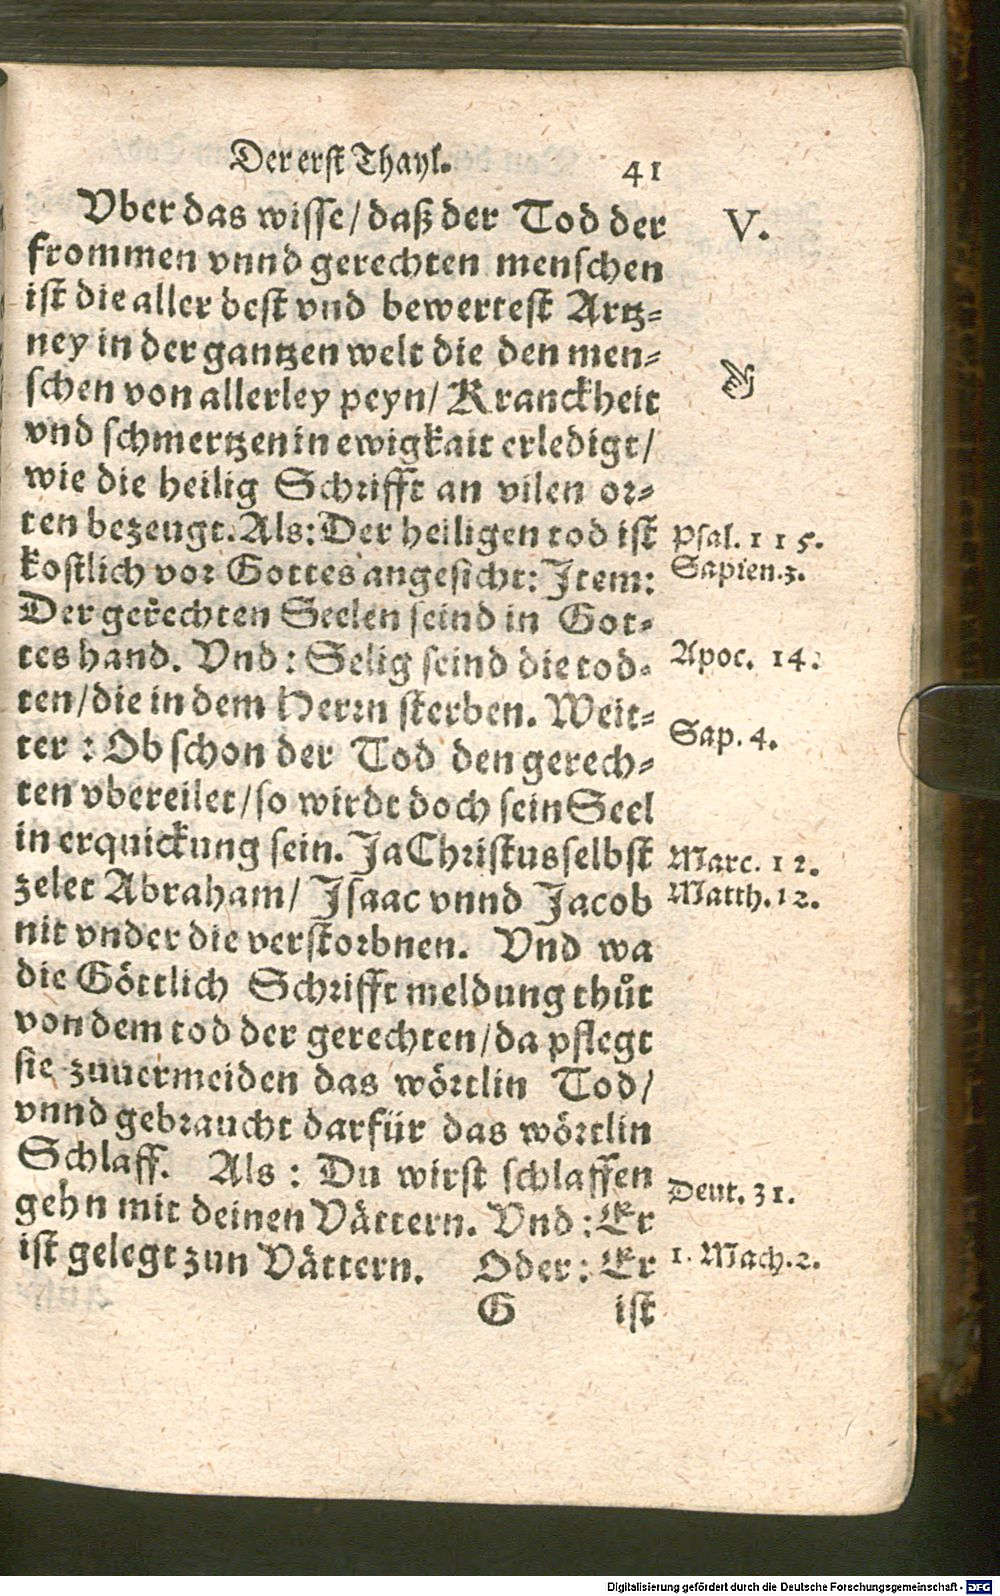 Der erst Thayl. 41
Vber das wisse/ daß der Tod der V.
frommen vnnd gerechten menschen
ist die aller best vnd bewertest Artz-
ney in der gantzen welt die den men-
schen von allerley peyn/ Kranckheit
vnd schmertzen in ewigkait erledigt/
wie die heilig Schrifft an vilen or-
ten bezeugt. Als: Der heiligen tod ist Psal. 115.
kostlich vor Gottes angesicht: Item: Sapien. 3.
Der gerechten Seelen seind in Got-
tes hand. Vnd: Selig seind die tod- Apoc. 14.
ten/ die in dem Herrn sterben. Weit-
ter: Ob schon der Tod den gerech- Sap. 4.
ten vbereilet/ so wirdt doch sein Seel
in erquickung sein. Ja Christus selbst Marc. 12.
zelet Abraham/ Isaac vnnd Jacob Matth. 12.
nit vnder die verstorbnen. Vnd wa
die Göttlich Schrifft meldung thůt
von dem tod der gerechten/ da pflegt
sie zuuermeiden das wörtlin Tod/
vnnd gebraucht darfür das wörtlin
Schlaff. Als: Du wirst schlaffen
gehn mit deinen Vättern. Vnd: Er Deut. 31.
ist gelegt zun Vättern. Oder: Er 1. Mach. 2.
G ist
Digitalisierung gefördert durch die Deutsche Forschungsgemeinschaft - DFG